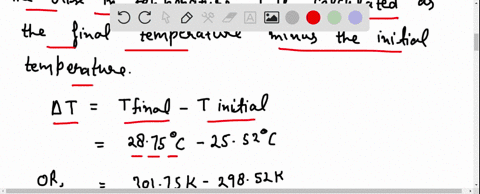 the final temperature minus the initial
temperature.
ΔT = Tfinal - T initial
= 28.75°C - 25.52°C
OR, = 301.75K - 298.52K